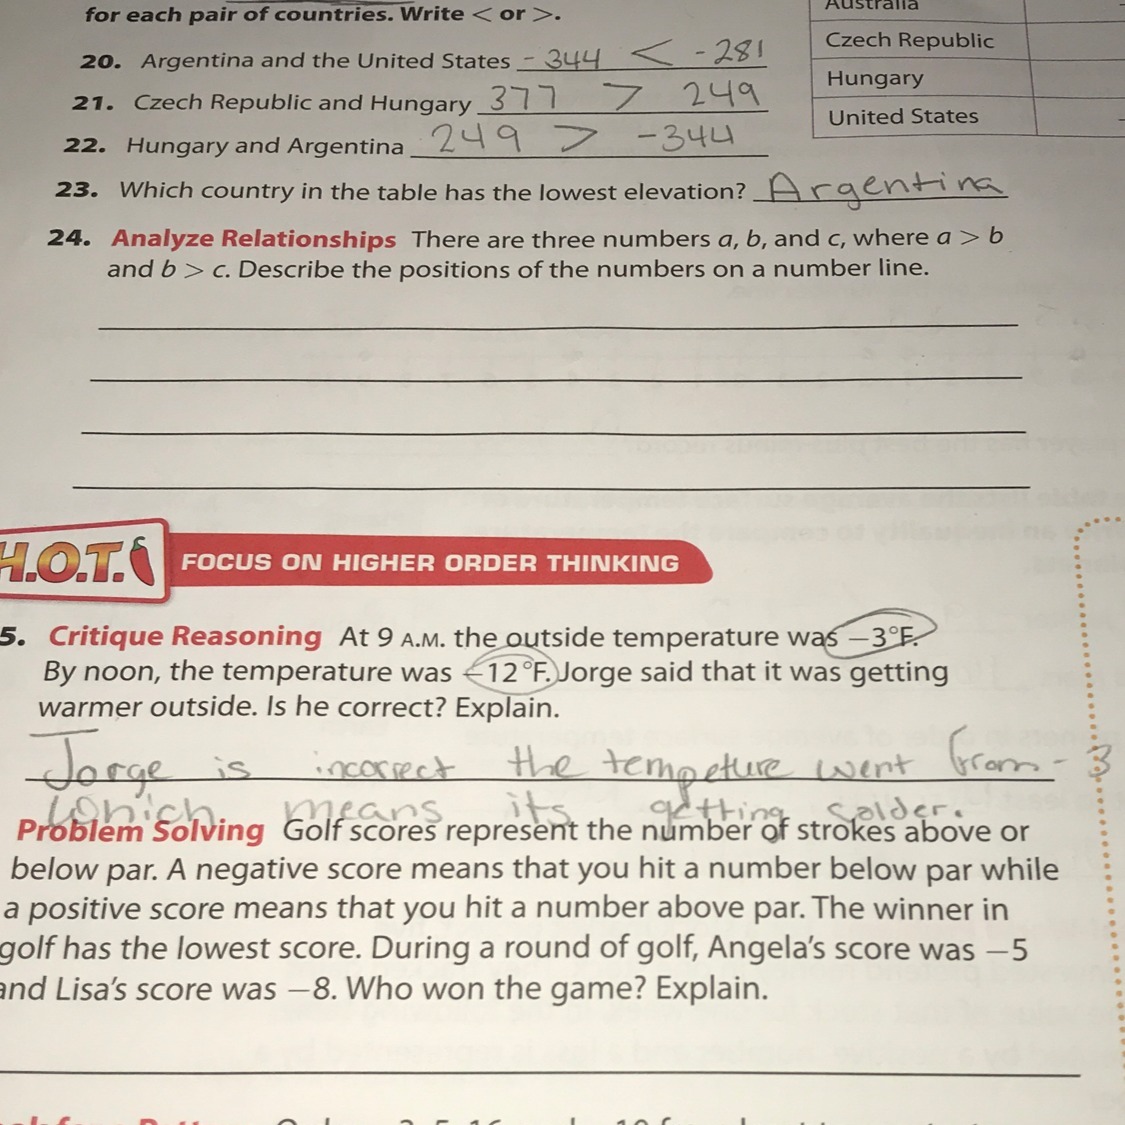 for each pair of countries. Write < or >.
Australia
Czech Republic
Hungary
United States
20. Argentina and the United States - 344 < - 281
21. Czech Republic and Hungary 377 > 249
22. Hungary and Argentina 249 > -344
23. Which country in the table has the lowest elevation? Argentina
24. Analyze Relationships There are three numbers a, b, and c, where a > b
and b > c. Describe the positions of the numbers on a number line.
H.O.T. FOCUS ON HIGHER ORDER THINKING
5. Critique Reasoning At 9 A.M. the outside temperature was −3°F.
By noon, the temperature was −12°F. Jorge said that it was getting
warmer outside. Is he correct? Explain.
Jorge is incorrect the tempeture went from - 3
which means its getting colder.
Problem Solving Golf scores represent the number of strokes above or
below par. A negative score means that you hit a number below par while
a positive score means that you hit a number above par. The winner in
golf has the lowest score. During a round of golf, Angela's score was −5
and Lisa's score was −8. Who won the game? Explain.